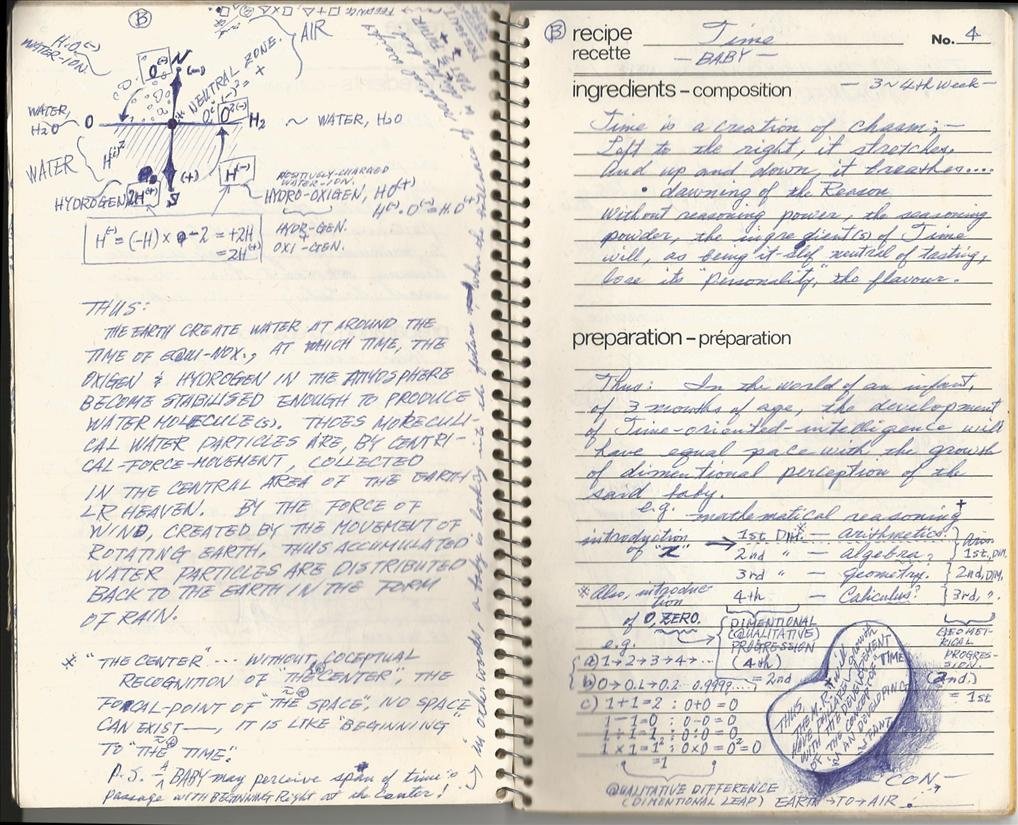 B
AIR
H2O(-)
WATER-ION,
N
O(-)
(-)
NEUTRAL ZONE.
WATER,
H2O
O
H2
~ WATER, H2O
WATER
(+)
H(-)
POSITIVELY-CHARGED
WATER-ION,
HYDROGEN,
2H(+)
S
HYDRO-OXIGEN, HO(+)
H(-) = (-H) x -2 = +2H
= 2H(+)
HYDR-GEN.
OXI-GEN.
THUS:
THE EARTH CREATE WATER AT AROUND THE
TIME OF EQUI-NOX., AT WHICH TIME, THE
OXIGEN & HYDROGEN IN THE ATMOSPHERE
BECOME STABILISED ENOUGH TO PRODUCE
WATER MOLECULE(S). THOES MORECULI-
CAL WATER PARTICLES ARE, BY CENTRI-
CAL-FORCE-MOVEMENT, COLLECTED
IN THE CENTRAL AREA OF THE EARTH
LR HEAVEN. BY THE FORCE OF
WIND, CREATED BY THE MOVEMENT OF
ROTATING EARTH, THUS ACCUMULATED
WATER PARTICLES ARE DISTRIBUTED
BACK TO THE EARTH IN THE FORM
OF RAIN.
* "THE CENTER" ... WITHOUT COCEPTUAL
RECOGNITION OF "THE CENTER", THE
FOCAL-POINT OF "THE SPACE", NO SPACE
CAN EXIST—, IT IS LIKE "BEGINNING"
TO "THE TIME".
P.S. - A BABY may perceive span of time's
passage WITH BEGINNING Right at the Center!
in other words, a baby is looking into the future
B
recipe Time No. 4
recette — BABY —
ingredients – composition 3~4th week—
Time is a creation of chasm;—
Left to the right, it stretches.
And up and down, it breathes....
• dawning of the Reason
Without reasoning power, the seasoning
powder, the ingredient(s) of Time
will, as being it-self neutral of tasting,
lose its "personality", the flavour.
preparation – préparation
Thus: In the world of an infant,
of 3 months of age, the development
of Time-oriented-intelligence will
have equal pace with the growth
of dimentional perception of the
said baby.
e.g. mathematical reasoning +
introduction 1st DIM.* — arithmetics.
of "X" → 2nd " — algebra, 1st, DIM.
3rd " — Geometry. 2nd, DIM.
*Also, introduc- 4th — Caliculus? 3rd, ".
tion
of O, ZERO.
e.g.
DIMENTIONAL
(QUALITATIVE)
PROGRESSION
(4th)
= 2nd
GEOMET-
RICAL
PROGRES-
SION.
(2nd.)
= 1st
a) 1→2→3→4→...
b) 0→0.1→0.2 0.9999....
c) 1+1=2 ; 0+0=0
1-1=0 ; 0-0=0
1÷1=1 ; 0÷0=0
1x1=1² ; 0x0=0²=0
=1
QUALITATIVE DIFFERENCE
(DIMENTIONAL LEAP)
THUS,
WITH THE DEVELOPMENT
OF "THE CONCEPT OF TIME"
IN AN DEVELOPING
INFANT
— CON—
EARTH→TO→AIR